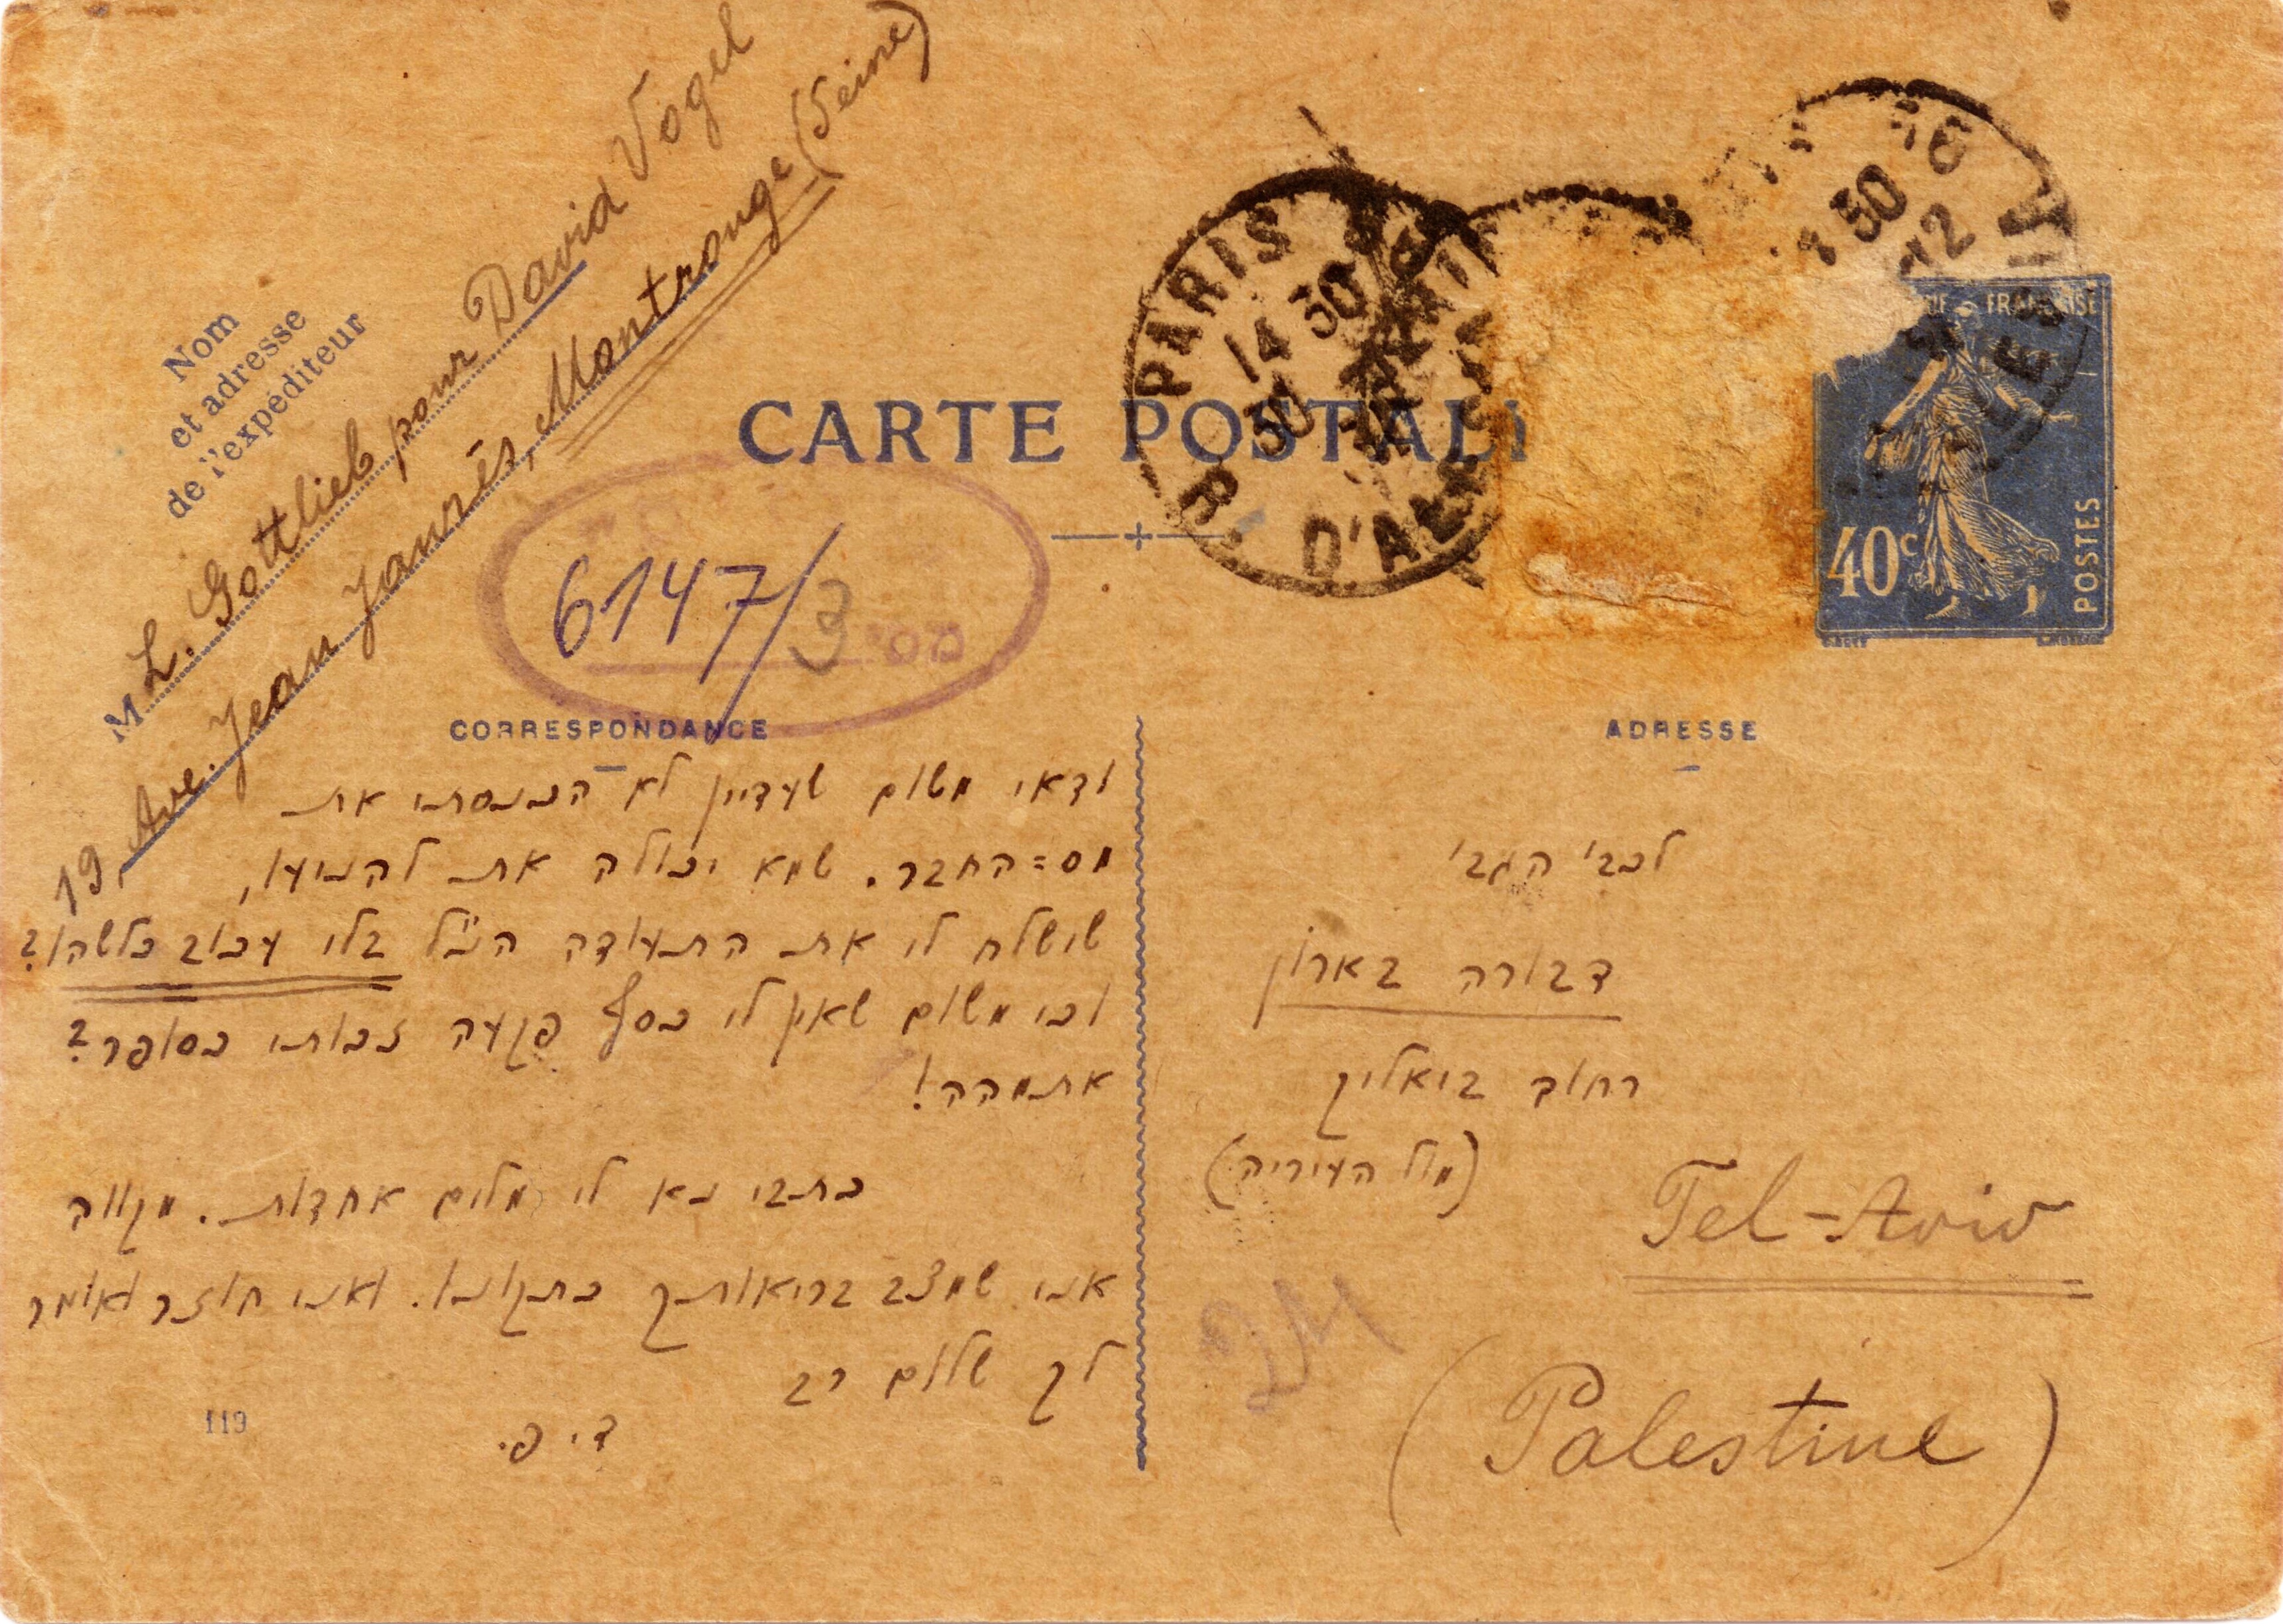 Nom
et adresse
de l'expéditeur
M L. Gottlieb pour David Vogel
19, Ave. Jean Jaurès, Montrouge (Seine)
CARTE POSTALE
PARIS
14 30
30
R. D'AL
30
12
FRANÇAISE
40c
POSTES
6147/3
CORRESPONDANCE
ודאי משום שעדיין לא הכנסתי את
מס=החבר. שמא יכולה את להניעו,
שישלח לי את התעודה הנ"ל בלי עכוב כלשהו?
וכי משום שאין לי כסף פקעה זכותי כסופר?
אתמהה!
כתבי נא לי מלים אחדות. מקווה
אני שמצב בריאותך כתקונו. ואני חוזר ואומר
לך שלום רב
ד. פ.
119
ADRESSE
לכב' הגב'
דבורה בארון
רחוב ביאליק
(מול העיריה)
Tel-Aviv
(Palestine)